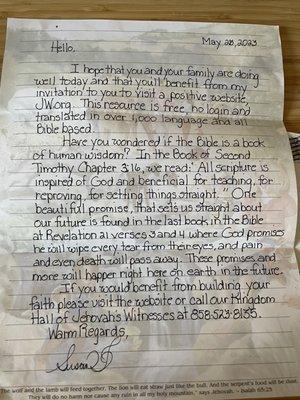 May 28, 2023
Hello,
I hope that you and your family are doing
well today and that you'll benefit from my
invitation to you to visit a positive website,
JW.org. This resource is free, no login and
translated in over 1,000 language and all
Bible based.
Have you wondered if the Bible is a book
of human wisdom? In the Book of Second
Timothy, Chapter 3:16, we read: "All scripture is
inspired of God and beneficial for teaching, for
reproving, for setting things straight." One
beautiful promise, that sets us straight about
our future is found in the last book in the Bible
at Revelation 21 verses 3 and 4 where God promises
he will wipe every tear from their eyes, and pain
and even death will pass away. These promises and
more will happen right here on earth in the future.
If you would benefit from building your
faith please visit the website or call our Kingdom
Hall of Jehovah's Witnesses at 858-523-8135.
Warm Regards,
Susan
The wolf and the lamb will feed together, The lion will eat straw just like the bull. And the serpent's food will be dust.
They will do no harm nor cause any ruin in all my holy mountain," says Jehovah. - Isaiah 65:25